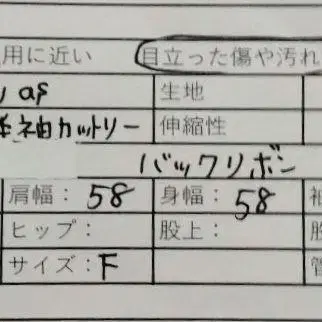 用に近い 目立った傷や汚れ
生地
半袖カットソー 伸縮性
バックリボン
肩幅：58 身幅：58
ヒップ： 股上：
サイズ：F